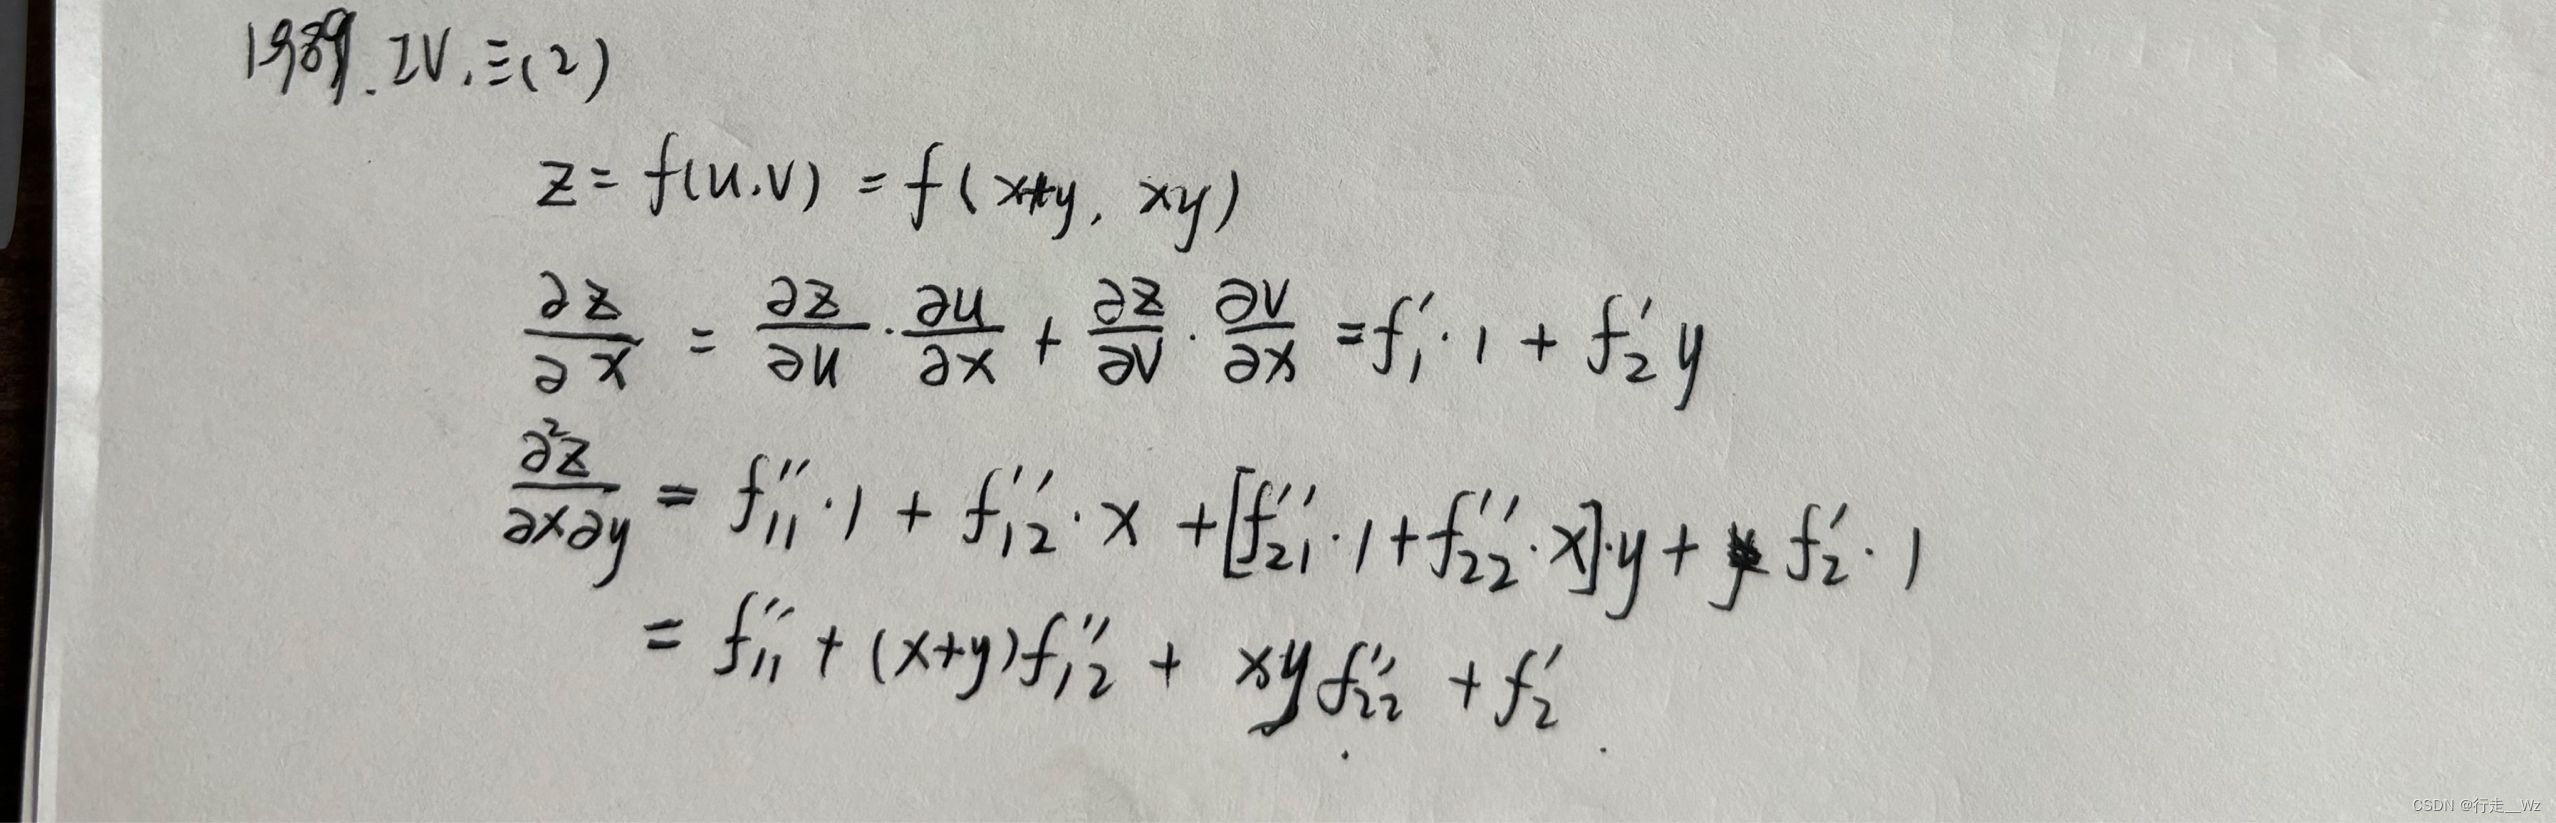 1989.IV.三(2)
z = f(u.v) = f(x+y, xy)
∂z/∂x = ∂z/∂u · ∂u/∂x + ∂z/∂v · ∂v/∂x = f₁′·1 + f₂′ y
∂²z/∂x∂y = f₁₁″·1 + f₁₂″·x + [f₂₁″·1 + f₂₂″·x]·y + f₂′·1
= f₁₁″ + (x+y)f₁₂″ + xy f₂₂″ + f₂′
CSDN @行走__Wz